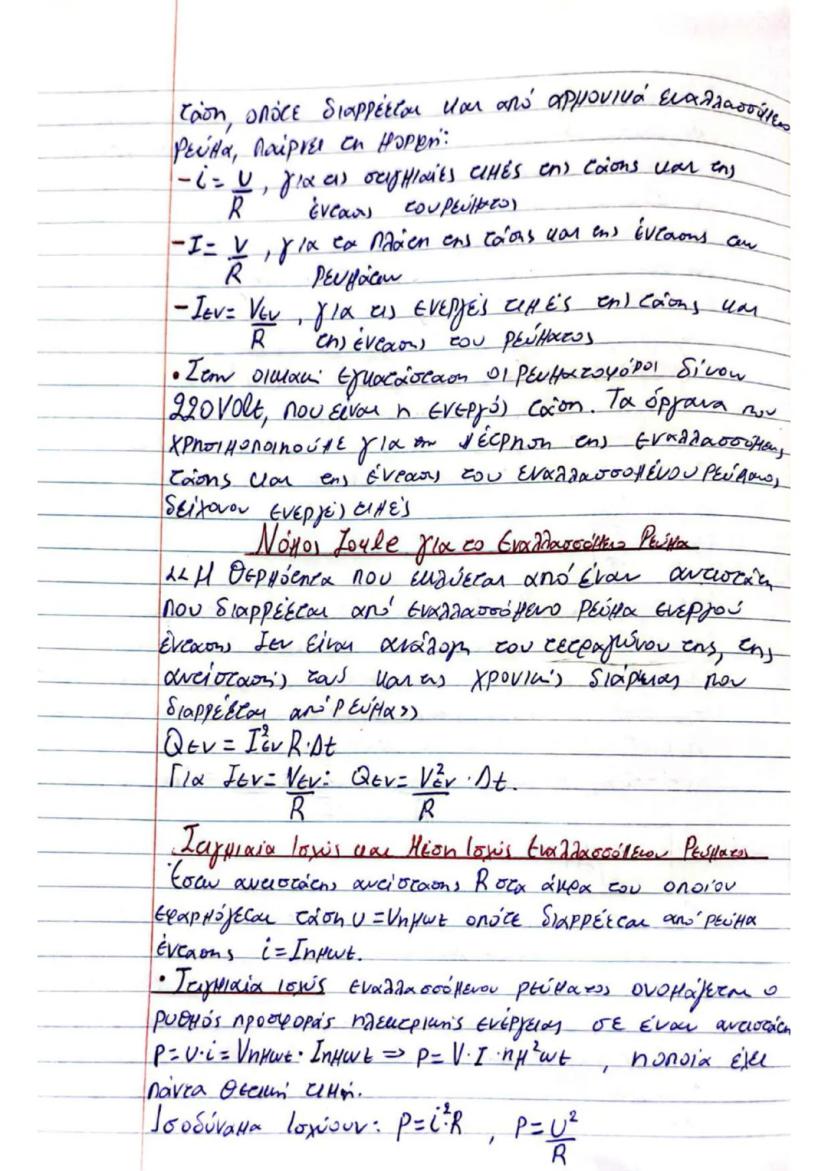 τάση, οπότε διαρρέεται και από αρμονικά εναλλασσόμενο
ρεύμα, παίρνει τη μορφή:
- i = υ/R , για τις στιγμιαίες τιμές της τάσης και της
έντασης του ρεύματος
- I = V/R , για τα πλάτη της τάσης και της έντασης των
ρευμάτων
- Iεν = Vεν/R , για τις ενεργές τιμές της τάσης και
της έντασης του ρεύματος
• Στην οικιακή εγκατάσταση οι ρευματοφόροι δίνουν
220Volt, που είναι η ενεργός τάση. Τα όργανα που
χρησιμοποιούμε για την μέτρηση της εναλλασσόμενης
τάσης και της έντασης του εναλλασσομένου ρεύματος,
δείχνουν ενεργές τιμές
Νόμος Joule για το Εναλλασσόμενο Ρεύμα
<< Η θερμότητα που εκλύεται από έναν αντιστάτη
που διαρρέεται από εναλλασσόμενο ρεύμα ενεργού
έντασης Iεν είναι ανάλογη του τετραγώνου της, της
αντίστασής του και της χρονικής διάρκειας που
διαρρέεται από ρεύμα>>
Qεν = I²εν R·Δt
Για Iεν = Vεν/R : Qεν = V²εν/R · Δt.
Στιγμιαία Ισχύς και Μέση Ισχύς Εναλλασσόμενου Ρεύματος
Έστω αντιστάτης αντίστασης R στα άκρα του οποίου
εφαρμόζεται τάση υ = Vημωt οπότε διαρρέεται από ρεύμα
έντασης i = Iημωt.
• Στιγμιαία ισχύς εναλλασσόμενου ρεύματος ονομάζεται ο
ρυθμός προσφοράς ηλεκτρικής ενέργειας σε έναν αντιστάτη
P = υ·i = Vημωt · Iημωt => P = V·I·ημ²ωt , η οποία έχει
πάντα θετική τιμή.
Ισοδύναμα Ισχύουν: P = i²·R , P = υ²/R